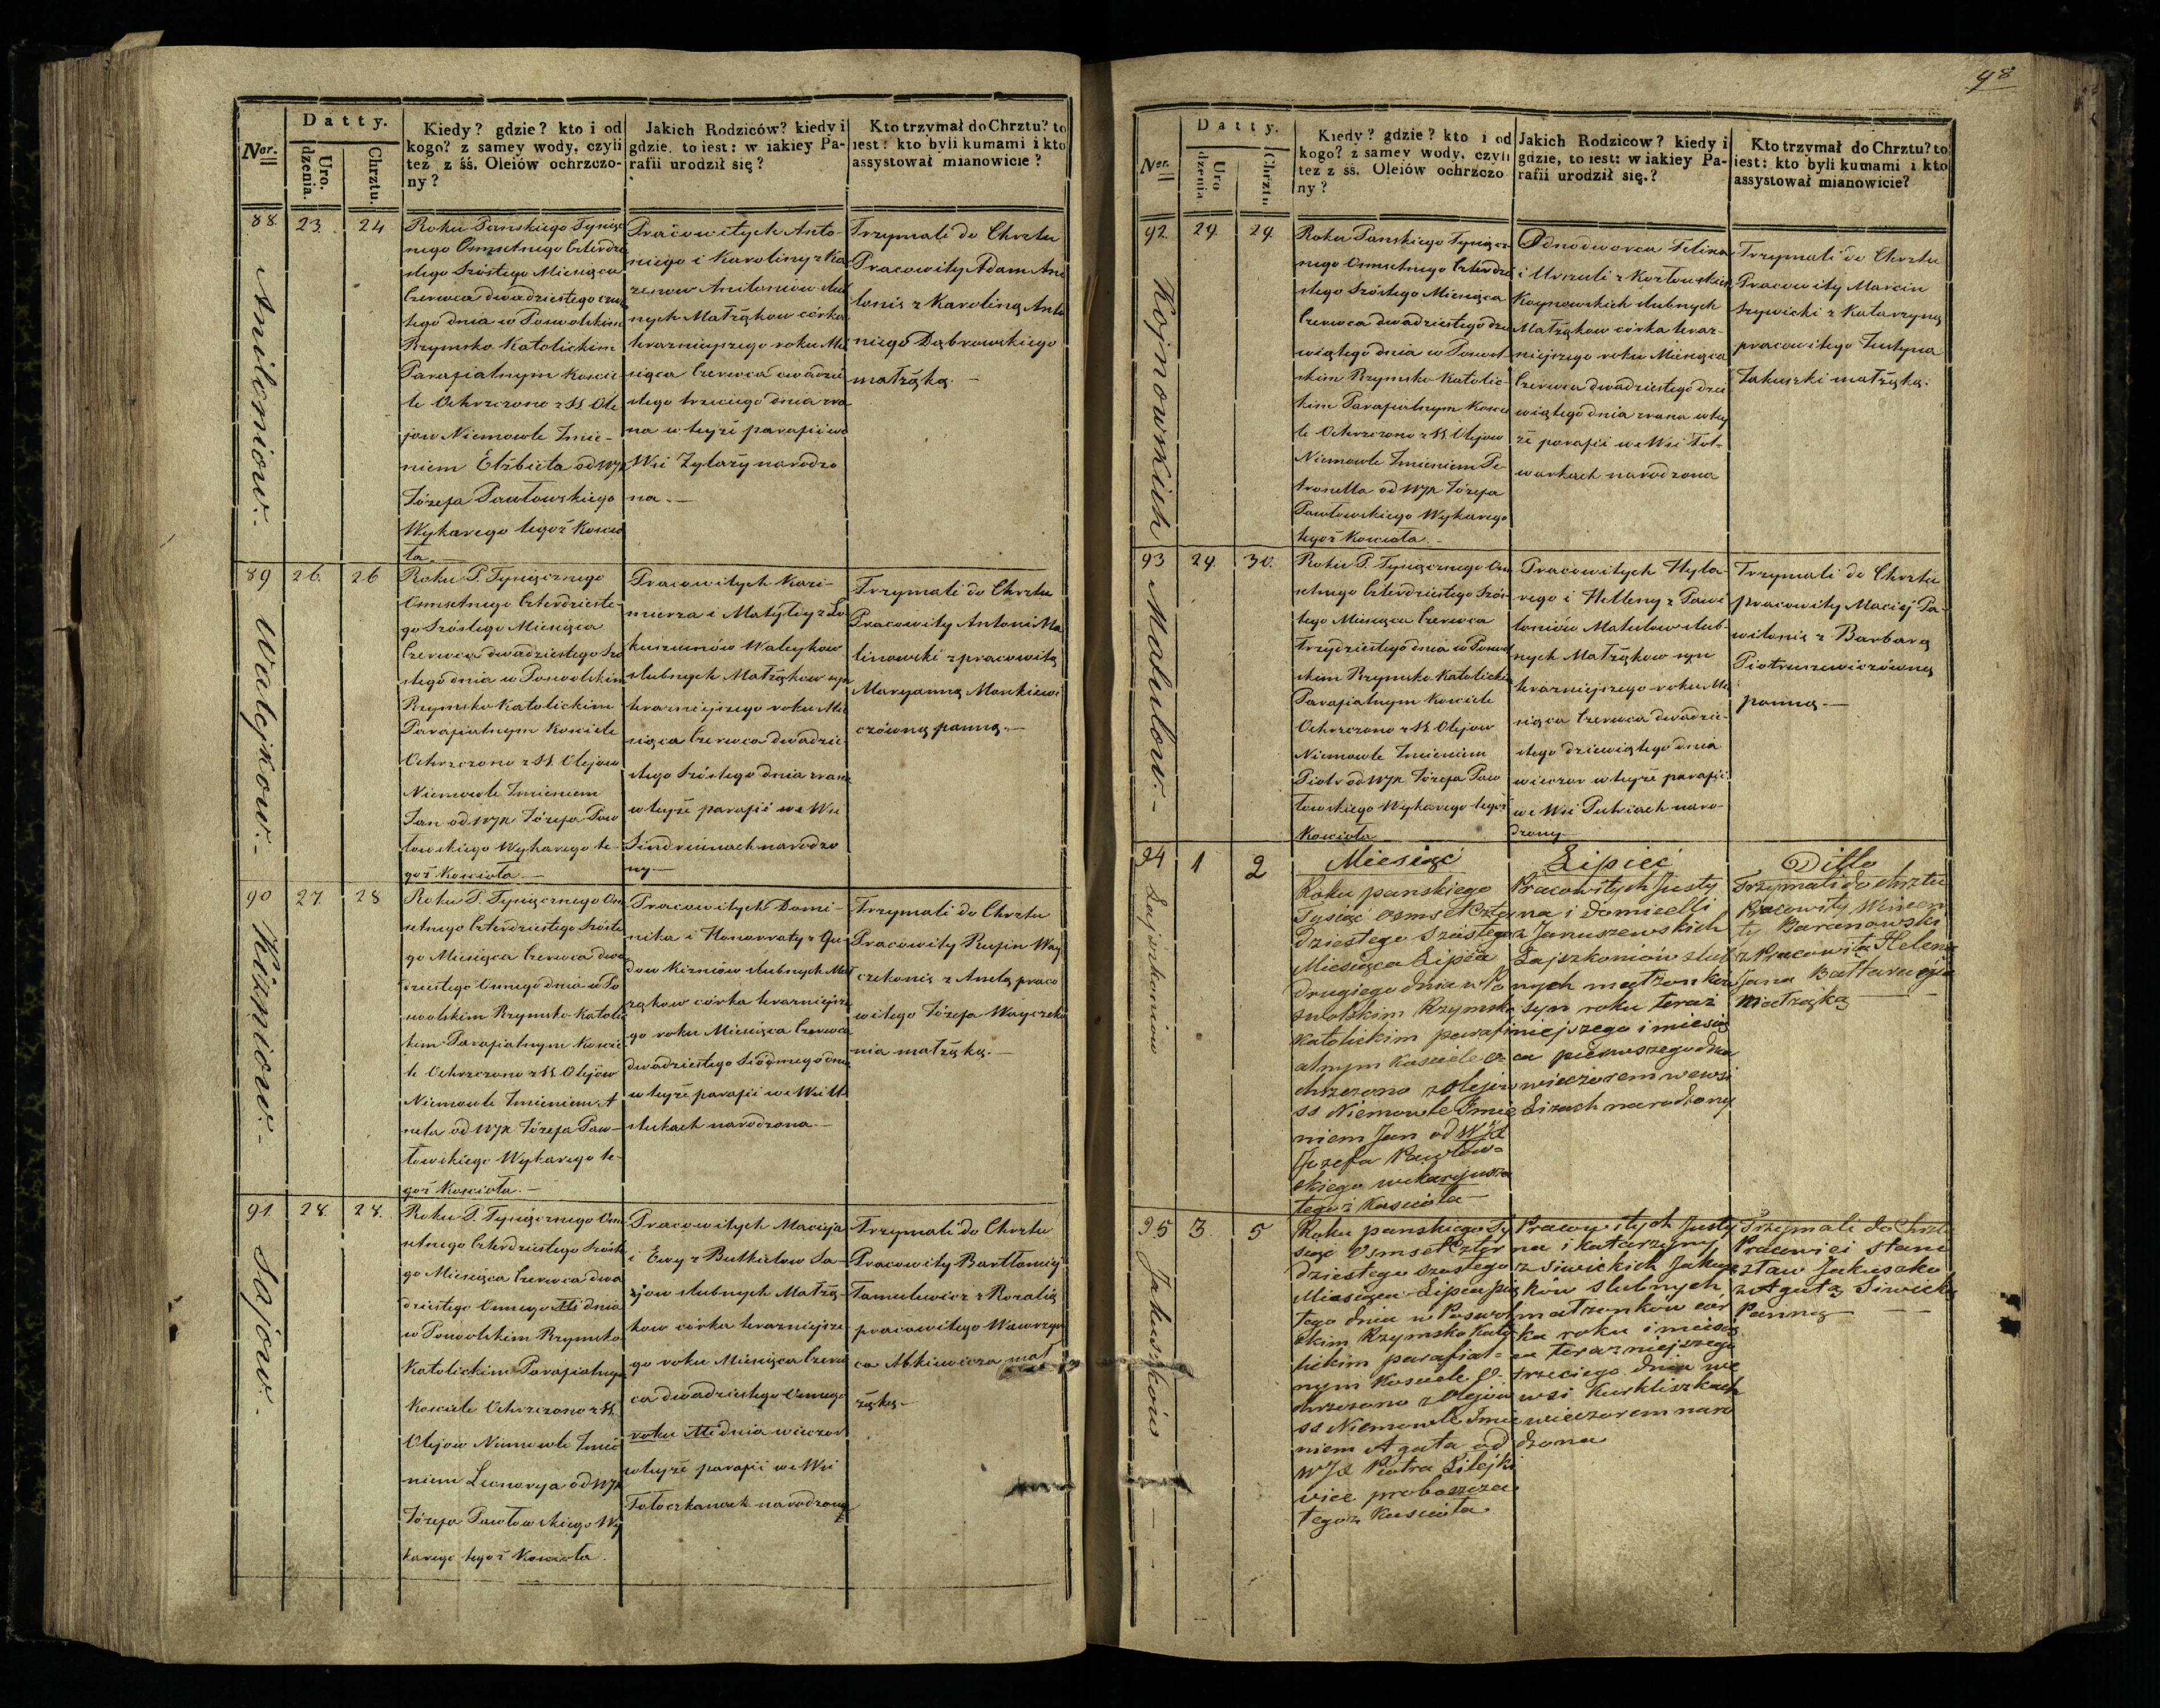 Datty.
Nor.
Uro.
dzenia.
Chrztu.
Kiedy? gdzie? kto i od
kogo? z samey wody, czyli
tez z śś. Oleiów ochrzczo-
ny?
Jakich Rodziców? kiedy i
gdzie, to iest: w iakiey Pa-
rafii urodził się?
Kto trzymał do Chrztu? to
iest: kto byli kumami i kto
assystował mianowicie?
88.
23.
24
Roku Panskiego Tysiącz
nego Osmsetnego Czterdzie
stego Szóstego Miesiąca
Czerwca dwadziestego czwar
tego dnia w Poswolskim
Rzymsko Katolickim
Parafialnym Koscie-
le Ochrzczono z SS Ole-
jow Niemowle Imie-
niem Elżbieta od WJX
Józefa Pawłowskiego
Wykarego tegoż Koscio
ła
Pracowitych Anto
niego i Karoliny z Ka
zenow Aniloniow slub
nych Małżąkow córka
terazniejszego roku Mie
siąca Czerwca dwadzie
stego trzeciego dnia zra
na w tejże parafii we
Wsi Zylaży narodzo
na.-
Trzymali do Chrztu
Pracowity Adam Ani
lonis z Karoliną Anto
niego Dąbrowskiego
małżąką.-
Aniloniow.-
89
26.
26
Roku P. Tysiącznego
Osmsetnego Czterdzieste-
go Szóstego Miesiąca
Czerwca dwadziestego Szó
stego dnia w Poswolskim
Rzymsko Katolickim
Parafialnym Kosciele
Ochrzczono z SS. Olejow
Niemowle Imieniem
Jan od WJX Józefa Paw
łowskiego Wykarego te-
goż Kosciota.-
Pracowitych Kazi-
mierza i Matyldy z Lu
kuszunów Walejkow
slubnych Małżąkow syn
terazniejszego roku Mie
siąca Czerwca dwadzie
stego Szóstego dnia zrana
w tejże parafii we Wsi
Sindriunach narodzo
ny-
Trzymali do Chrztu
Pracowity Antoni Ma
linowski z pracowitą
Maryanną Monkiewi
czówną panną.-
Walejkow.-
90
27.
28
Roku P. Tysiącznego Osm
setnego Czterdziestego Szóste
go Miesiąca Czerwca dwa
dziestego Osmego dnia w Po
swolskim Rzymsko-Katolic
kim Parafialnym Koscie
le Ochrzczono z SS Olejów
Niemowle Imieniem A
neta od WJX Józefa Paw-
łowskiego Wykarego te-
goż Kosciota.-
Pracowitych Domi-
nika i Honorraty z Gu
dow Kizniów slubnych Mał
żąkow córka terazniejsze
go roku Miesiąca Czerwca
dwadziestego Siódmego dnia
w tejże parafii we Wsi U
stukach narodzona.-
Trzymali do Chrztu
Pracowity Rufin Way
czekonis z Anetą praco
witego Józefa Wayczeko
nia małżąką.-
Kizniow.-
91.
28.
28.
Roku P. Tysiącznego Osm
setnego Czterdziestego Szóste
go Miesiąca Czerwca dwa
dziestego Osmego dnia
w Poswolskim Rzymsko
Katolickim Parafialnym
Kosciele Ochrzczono z SS.
Olejow Niemowle Imie
niem Leonorya od WJX
Józefa Pawłowskiego Wy
karego tegoż Kosciota.
Pracowitych Macieja
i Ewy z Butkielow Sa-
jow slubnych Małżą-
kow córka terazniejsze
go roku Miesiąca Czerw
ca dwadziestego Osmego
roku dnia wieczor
w tejże parafii we Wsi
Tołoczkanach narodzona
Trzymali do Chrztu
Pracowity Bartłomiej
Tamulewicz z Rozalią
pracowitego Wawrzyń
ca Abkiewicza mał
żąką.-
Sajow.-
98
Datty.
Nor.
Uro
dzenia
Chrztu
Kiedy? gdzie? kto i od
kogo? z samey wody, czyli
tez z śś. Oleiów ochrzczo
ny?
Jakich Rodzicow? kiedy i
gdzie, to iest: w iakiey Pa-
rafii urodził się.?
Kto trzymał do Chrztu? to
iest: kto byli kumami i kto
assystował mianowicie?
92.
29.
29.
Roku Panskiego Tysiącz
nego Osmsetnego Czterdzie
stego Szóstego Miesiąca
Czerwca dwadziestego dzie
wiątego dnia w Poswol
skim Rzymsko-Katolic-
kim Parafialnym Koscie
le Ochrzczono z SS. Olejow
Niemowle Imieniem Pe-
tronella od WJX Józefa
Pawłowskiego Wykarego
tegoż Kosciota.-
Odnodworca Felixa
i Urszuli z Kozłowskich
Koynowskich slubnych
Małżąkow córka teraz-
niejszego roku Miesiąca
Czerwca dwadziestego dzie
wiątego dnia zrana w tej
że parafii we Wsi Fol-
warkach narodzona
Trzymali do Chrztu
Pracowity Marcin
Szywicki z Katarzyną
pracowitego Justyna
Jakuszki małżąką.
Kojnowskich
93
29.
30.
Roku P. Tysiącznego Osm
setnego Czterdziestego Szós-
tego Miesiąca Czerwca
Trzydziestego dnia w Poswol
skim Rzymsko-Katolickim
Parafialnym Kosciele
Ochrzczono z SS. Olejow
Niemowle Imieniem
Piotr od WJX Józefa Paw
łowskiego Wykarego tegoż
Kosciota
Pracowitych Hyla-
rego i Helleny z Pawi
loniów Matulow slub-
nych Małżąkow syn
terazniejszego roku Mie
siąca Czerwca dwadzie-
stego dziewiątego dnia
wieczor w tejże parafii
we Wsi Puhciach naro-
dzony-
Trzymali do Chrztu
pracowity Maciej Pa-
wilonis z Barbarą
Piotruszewiczówną
panną.-
Matulow.-
94
1
2
Miesiąc Lipiec Ditto
Roku panskiego
Tysiąc osmset czter
dziestego szóstego
Miesiąca Lipca
drugiego dnia w Po
swolskim Rzymsko
katolickim parafi
alnym kosciele o-
chrzczono z olejow
ss Niemowle Imie
niem Jan od WJX
Jozefa Pawłow-
skiego wikaryusza
tegoż kosciola-
Pracowitych Justy
na i Domicelli
z Januszewskich
Łajszkoniów slub
nych małżonków
syn roku teraz
niejszego i miesią
ca pierwszego dnia
wieczorem we wsi
Lizach narodzony
Trzymali do chrztu
Pracowity Wincen
ty Baranowski
z Pracowitą Heleną
Jana Baltaragisa
Małżąką-
Łajszkoniow
95
3
5
Roku panskiego Ty
siąc Osmset czter
dziestego szostego
Miesiąca Lipca pią
tego dnia w Poswol
skim Rzymsko Kato
lickim parafial-
nym Kosciele O-
chrzczono z olejow
ss Niemowle Imie
niem Agata od
WJX Piotra Lilejki
vice proboszcza
tegoż kosciola
Pracowitych Justy
na i Katarzyny
z Siwickich Jakusz
ków slubnych
małżonków cór
ka roku i miesią
ca terazniejszego
trzeciego dnia we
wsi Kurkliszkach
wieczorem naro
dzona
Trzymali do Chrztu
Pracowici Stani
sław Jakuszko
z Agatą Siwicką
Panną-
Jakuszków